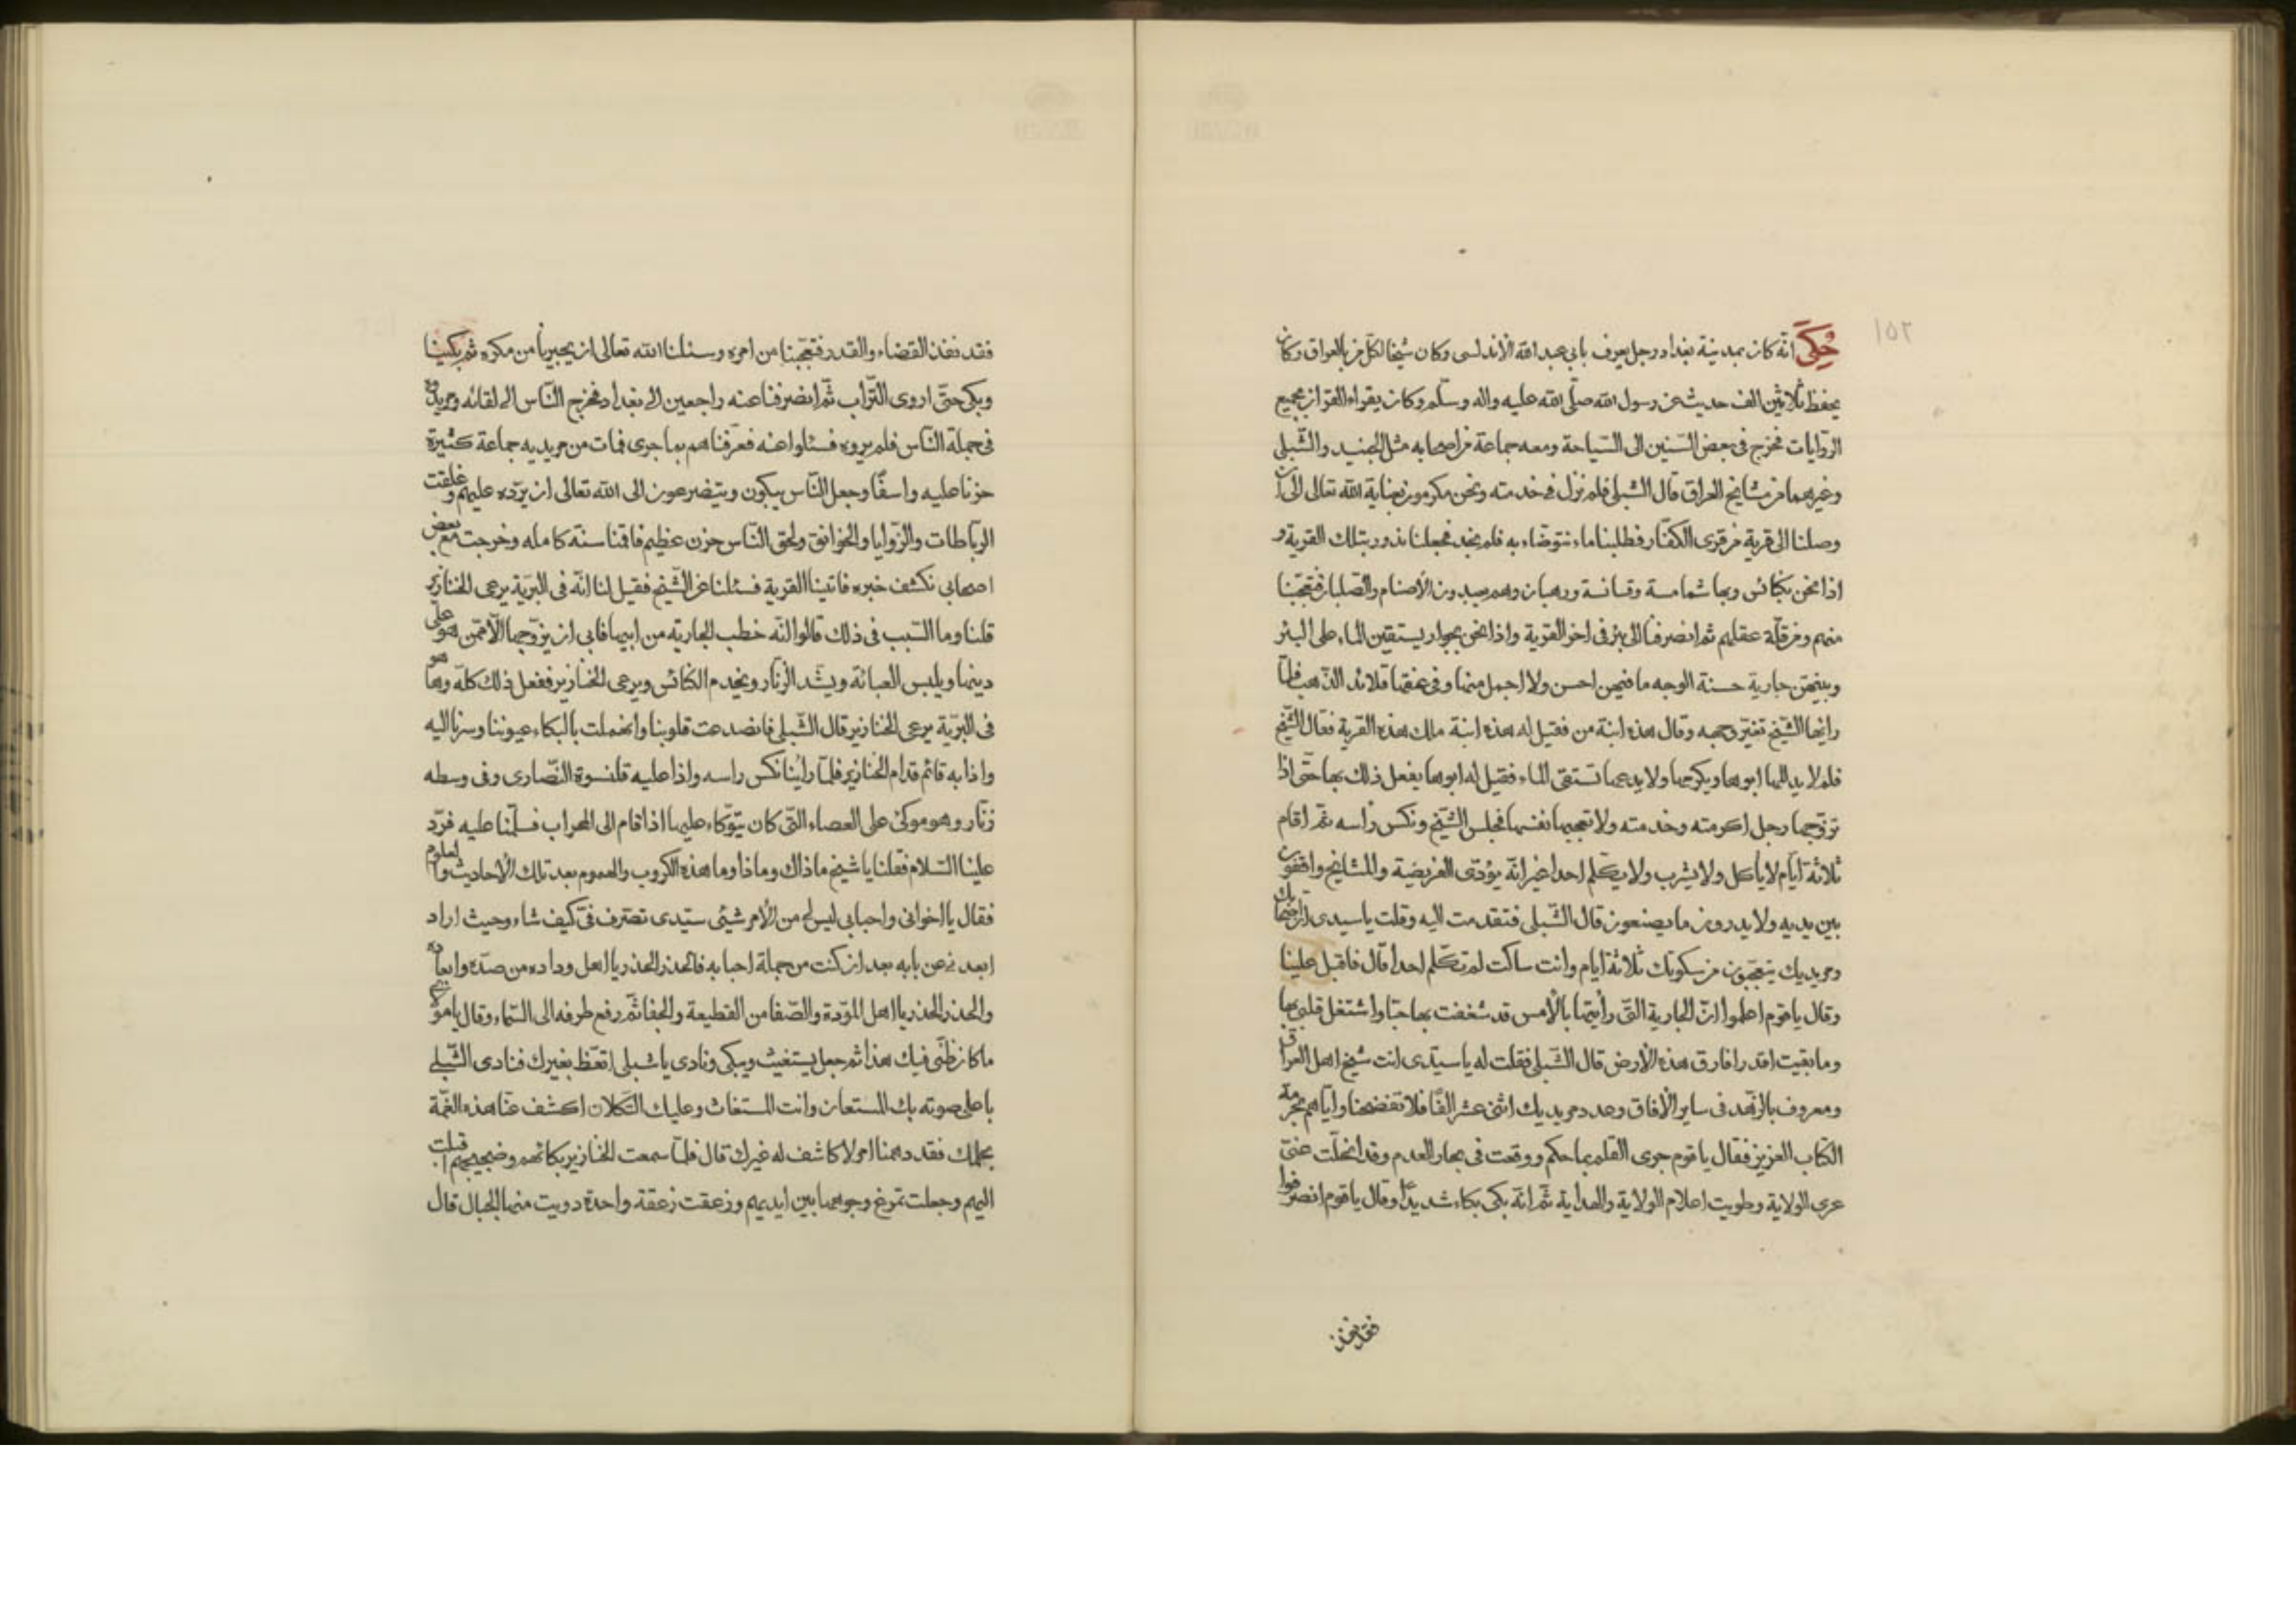 ١٥٢
حُكِيَ انّه كان بمدينة بغداد رجل يعرف بابي عبد الله الأندلسى وكان شيخا لكل من بالعراق وكان
يحفظ ثلاثين الف حديث عن رسول الله صلّى الله عليه واله وسلّم وكان يقراء القران بجميع
الرّوايات فخرج فى بعض السّنين الى السّياحة ومعه جماعة من اصحابه مثل الجنيد والشّبلى
وغيرهما من مشايخ العراق قال الشبلى فلم نزل فى خدمته ونحن مكرمون بعناية الله تعالى الى ان
وصلنا الى قرية من قرى الكفّار فطلبنا ماء نتوضاء به فلم نجد فجعلنا ندور بتلك القرية و
اذا نحن بكنائس وبها شمامسة وقسانسة ورهبان وهم يعبدون الأصنام والصّلبان فتعجّبنا
منهم ومن قلّة عقلهم ثم انصرفنا الى بئر فى اخر القرية واذا نحن بجوار يستقين الماء على البئر
وبينهنّ جارية حسنة الوجه ما فيهن احسن ولا اجمل منها وفى عنقها قلائد الذّهب فلمّا
راٰها الشّيخ تغيّر وجهه وقال هذه ابنة من فقيل له هذه ابنة ملك هذه القرية فقال الشّيخ
فلم لا يدللها ابوها ويكرمها ولا يدعها تستقى الماء فقيل له ابوها يفعل ذلك بها حتّى اذا
تزوّجها رجل اكرمته وخدمته ولا تعجبها نفسها فجلس الشّيخ ونكس رأسه ثم اقام
ثلاثة أيّام لا يأكل ولا يشرب ولا يكلم احدا غير انّه يؤدّى الفريضة والمشايخ واقفون
بين يديه ولا يدرون ما يصنعون قال الشّبلى فتقدمت اليه وقلت ياسيدى ان اصحابك
ومريديك يتعجّبون من سكوتك ثلاثة أيام وانت ساكت لم تكلّم احدا قال فاقبل علينا
وقال ياقوم اعلموا انّ الجارية الّتى رأيتها بالأمس قد شغفت بها حبّا واشتغل قلبى بها
وما بقيت اقدر افارق هذه الأرض قال الشّبلى فقلت له ياسيّدى انت شيخ اهل العراق
ومعروف بالزّهد فى ساير الأفاق وعدد مريديك اثنى عشر الفًا فلا تفضحنا وايّاهم بحرمة
الكتاب العزيز فقال ياقوم جرى القلم بما حكم ووقعت فى بحار العدم وقد انحلّت عنّى
عرى الولاية وطويت اعلام الولاية والهداية ثمّ انّه بكى بكاء شديدًا وقال ياقوم انصرفوا
فقد نفذ
فقد نفذ القضاء والقدر فتعجّبنا من امره وسئلنا الله تعالى ان يجيرنا من مكره ثم بكينا
وبكى حتّى اروى التّراب ثمّ انصرفنا عنه راجعين الى بغداد فخرج النّاس الى لقائه ومريدوه
فى جملة النّاس فلم يروه فسئلوا عنه فعرّفناهم بما جرى فمات من مريديه جماعة كثيرة
حزنا عليه واسفًا وجعل النّاس يبكون ويتضرعون الى الله تعالى ان يردّه عليهم وغلقت
الرّباطات والزّوايا والخوانق ولحق النّاس حزن عظيم فاقمنا سنة كامله وخرجت مع بعض
اصحابى نكشف خبره فاتينا القرية فسئلنا عن الشّيخ فقيل لنا انّه فى البرّية يرعى الخنازير
قلنا وما السّبب فى ذلك قالوا انّه خطب الجارية من ابيها فابى ان يزوّجها الّا ممّن هو على
دينها ويلبس العبائة ويشّد الزنّار ويخدم الكنائس ويرعى الخنازير ففعل ذلك كلّه وها هو
فى البرّية يرعى الخنازير قال الشّبلى فانصدعت قلوبنا وانهملت بالبكاء عيوننا وسرنا اليه
واذا به قائم قدام الخنازير فلمّا رأينا نكس راسه واذا عليه قلنسوة النّصارى وفى وسطه
زنّار وهو موكئ على العصاء الّتى كان يتوكّاء عليها اذا قام الى المحراب فسلّمنا عليه فردّ
علينا السّلام فقلنا ياشيخ ماذاك وماذا وما هذه الكروب والهموم بعد تلك الأحاديث والعلوم
فقال يااخوانى واحبابى ليس لى من الأمر شيئى سيّدى تصرّف فىّ كيف شاء وحيث اراد
ابعدنى عن بابه بعد ان كنت من جملة احبابه فالحذر الحذر يااهل وداده من صدّه وابعاده
والحذر الحذر يااهل المودّة والصّفا من القطيعة والجفا ثمّ رفع طرفه الى السّماء وقال يامولاى
ما كان ظنّى فيك هذا ثم جعل يستغيث ويبكى ونادى ياشبلى اتعّظ بغيرك فنادى الشّبلى
باعلى صوته بك المستعان وانت المستغاث وعليك التّكلان اكشف عنّا هذه الغمّة
بحلمك فقد دهمنا امر لا كاشف له غيرك قال فلمّا سمعت الخنازير بكائهم وضجيجهم اقبلت
اليهم وجعلت تمرغ وجوهها بين ايديهم وزعقت زعقة واحدة دويت منها الجبال قال